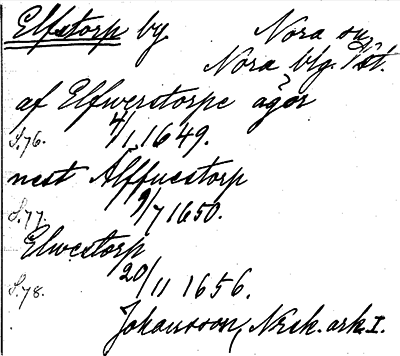 Elfstorp by Nora sn,
Nora blg. Vst.
af Elfwerstorpe ägor
S.76. 4/1 1649.
nest Älffuestorp
S.77. 9/7 1650.
Elwestorp
S.78. 20/11 1656.
Johansson, Nksk. ark. I.